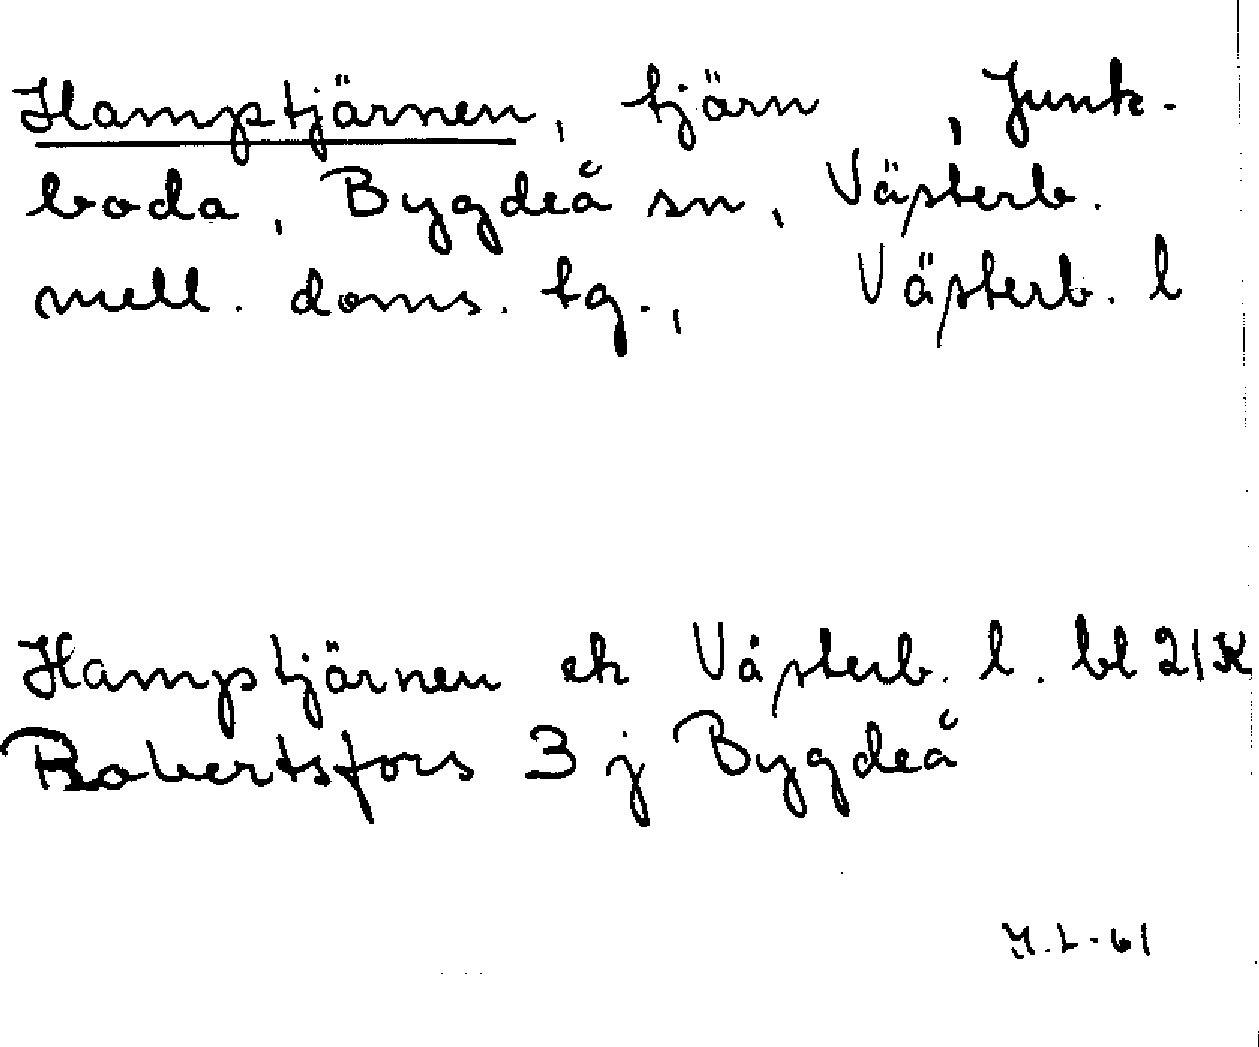 Hamptjärnen, tjärn , Junk-
boda, Bygdeå sn, Västerb.
mell. doms. tg., Västerb. l
Hamptjärnen ek Västerb. l. bl 21K
Robertsfors 3 j Bygdeå